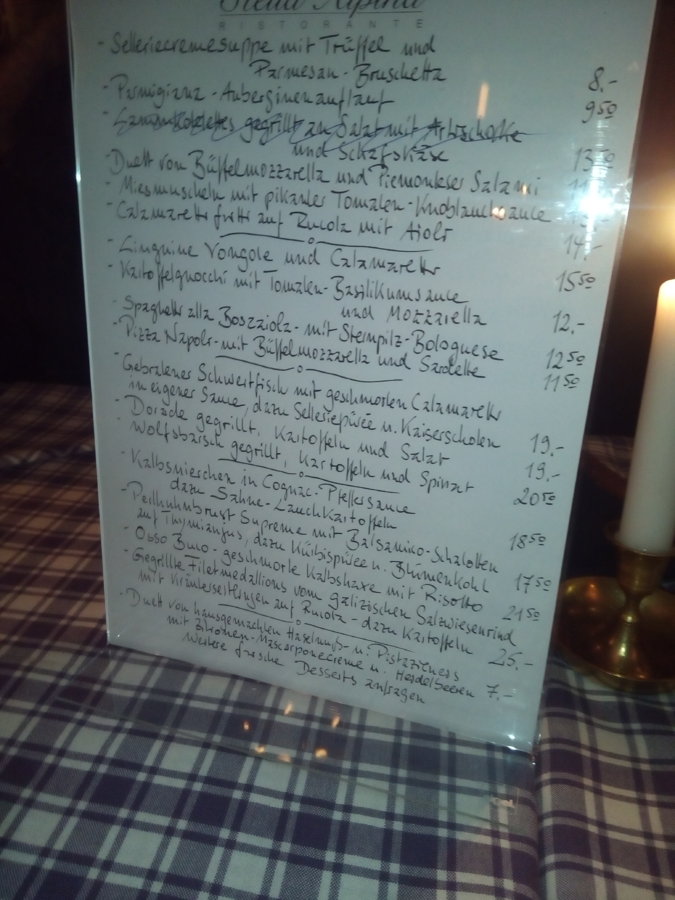 Stella Alpina
RISTORANTE
- Selleriecremesuppe mit Trüffel und
Parmesan-Bruschetta 8.-
- Parmigiana - Auberginenauflauf 9,50
- Lammkoteletts gegrillt an Salat mit Artischocke
und Schafskäse 13,50
- Duett von Büffelmozzarella und Piemonteser Salami
- Miesmuscheln mit pikanter Tomaten-Knoblauchsauce
- Calamaretti fritti auf Rucola mit Aioli 14.-
- Linguine Vongole und Calamaretti 15,50
- Kartoffelgnocchi mit Tomaten-Basilikumsauce
und Mozzarella 12.-
- Spaghetti alla Boscaiola - mit Steinpilz-Bolognese 12,50
- Pizza Napoli - mit Büffelmozzarella und Sardelle 11,50
- Gebratener Schwertfisch mit geschmorten Calamaretti
in eigener Sauce, dazu Selleriepürée u. Kaiserschoten 19.-
- Dorade gegrillt, Kartoffeln und Salat 19.-
- Wolfsbarsch gegrillt, Kartoffeln und Spinat 20,50
- Kalbsnierchen in Cognac-Pfeffersauce
dazu Sahne-Lauchkartoffeln 18,50
- Perlhuhnbrust Supreme mit Balsamico-Schalotten
auf Thymianjus, dazu Kürbispürée u. Blumenkohl 17,50
- Osso Buco - geschmorte Kalbshaxe mit Risotto 21,50
- Gegrillte Filetmedallions vom galizischen Salzwiesenrind
mit Kräuterseitlingen auf Rucola - dazu Kartoffeln 25.-
- Duett von hausgemachten Haselnuß- u. Pistazieneis
mit Zitronen-Mascarponecreme u. Heidelbeeren 7.-
Weitere frische Desserts anfragen